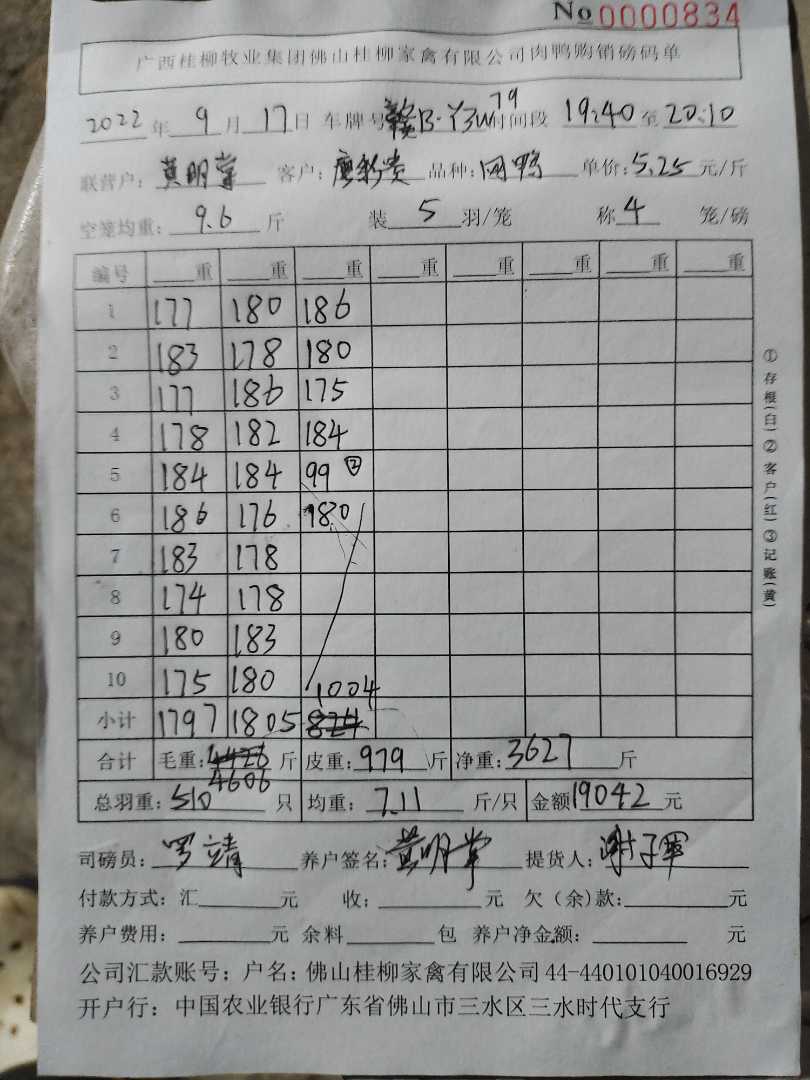 No 0000834
广西桂柳牧业集团佛山桂柳家禽有限公司肉鸭购销磅码单
2022年9月17日 车牌号 赣B·Y3W79 时间段 19:40至20:10
联营户: 黄明掌 客户: 廖 贵 品种: 网鸭 单价: 5.25元/斤
空笼均重: 9.6 斤 装 5 羽/笼 称 4 笼/磅
编号 重 重 重 重 重 重 重 重
1 177 180 186
2 183 178 180
3 177 186 175
4 178 182 184
5 184 184 99 ②
6 186 176 180
7 183 178
8 174 178
9 180 183
10 175 180
1004
小计 1797 1805 824
合计 毛重: 4426 斤 皮重: 979 斤 净重: 3627 斤
4606
总羽重: 510 只 均重: 7.11 斤/只 金额 19042 元
司磅员: 罗靖 养户签名: 黄明掌 提货人: 谢子军
付款方式: 汇 元 收: 元 欠(余)款: 元
养户费用: 元 余料 包 养户净金额: 元
公司汇款账号: 户名: 佛山桂柳家禽有限公司 44-440101040016929
开户行: 中国农业银行广东省佛山市三水区三水时代支行
①存根(白)②客户(红)③记账(黄)